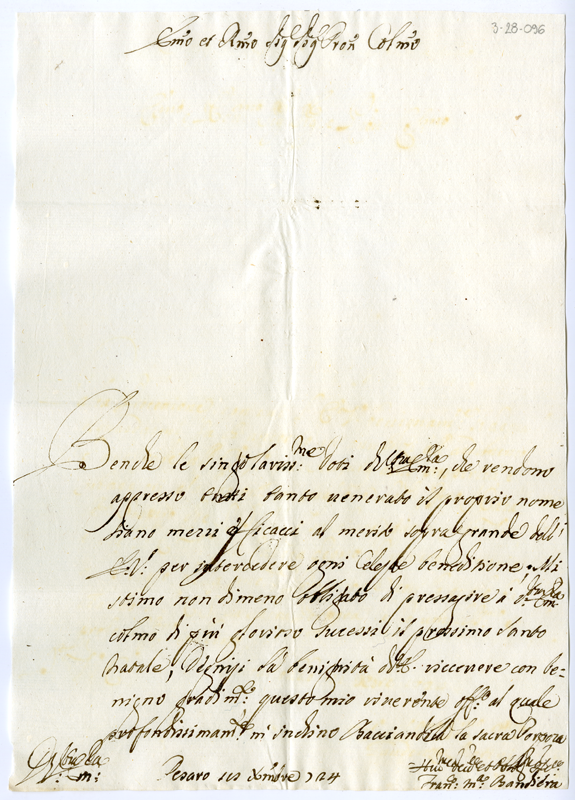 3-28-096
Emo et Rmo Sig Sig Pron Colmo
Benche le singolariss:me doti di V: Em:za, che rendono
appresso tutti tanto venerato il proprio nome
siano mezzi efficaci al merito sopragrande dell'
E: V: per intercedere ogni Celeste benedittione, Mi
stimo non dimeno obbligato di pressagire à V: Em:za
colmo di più gloriosi successi il prossimo Santo
Natale; Degnisi la benignità di V: E: riccevere con be-
nigno gradim:to questo mio riverente off:o al quale
profondissimam:te m'inchino Bacciandole la sacra Porpora
Di V: Em:za
Pesaro Xmbre 724
Fran: Ma Bandiera